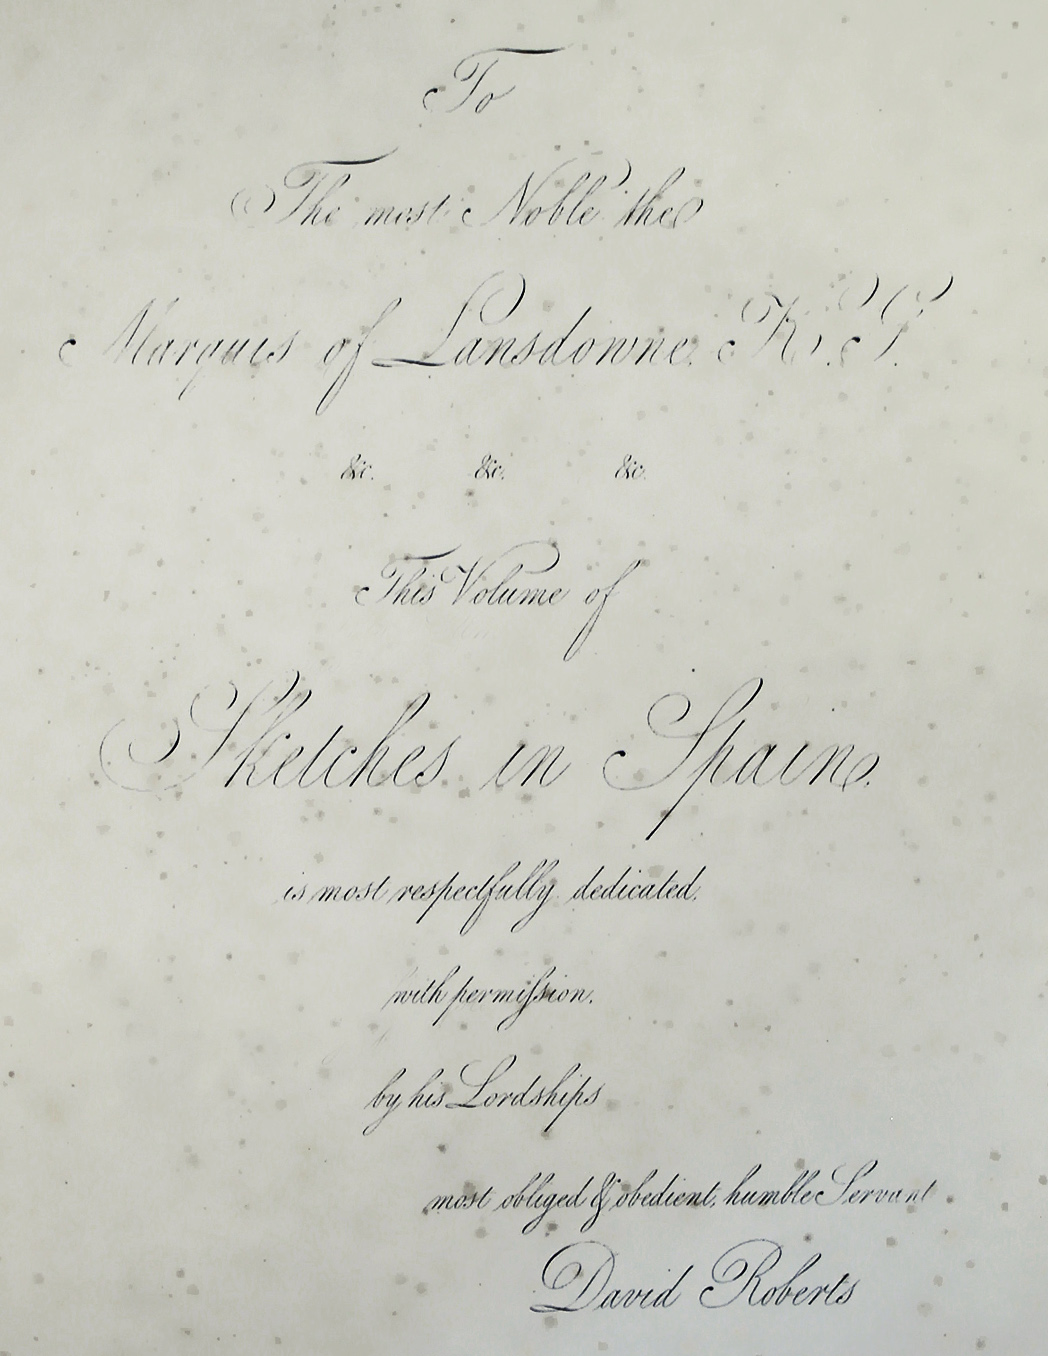 To
The most Noble the
Marquis of Lansdowne. K. G.
&c. &c. &c.
This Volume of
Sketches in Spain.
is most respectfully dedicated.
with permission.
by his Lordships
most obliged & obedient, humble Servant.
David Roberts